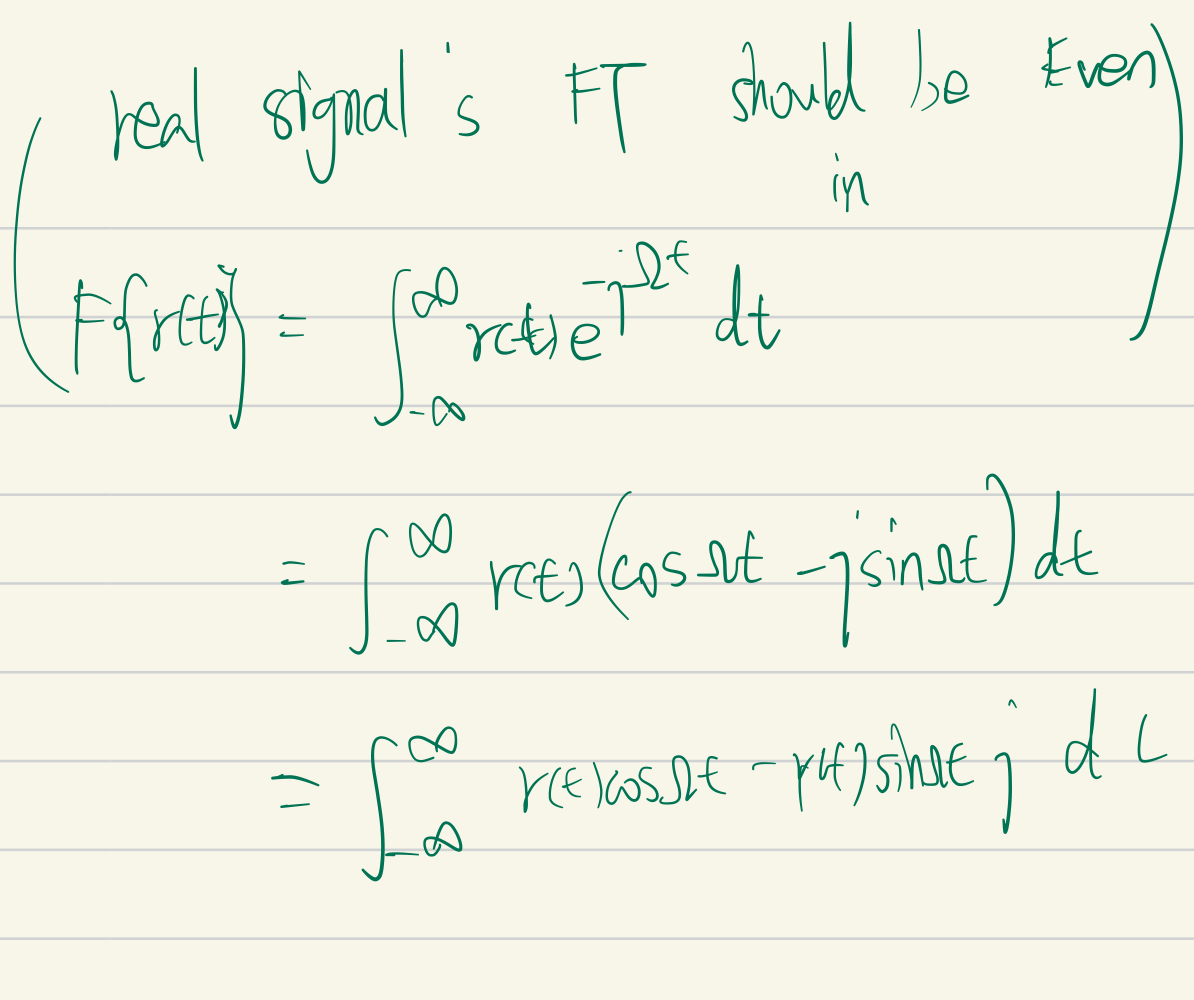 (real signal's FT should be Even)
in
F{r(t)} = ∫_{-∞}^{∞} r(t) e^{-jΩt} dt
= ∫_{-∞}^{∞} r(t) (cos Ωt - j sin Ωt) dt
= ∫_{-∞}^{∞} r(t) cos Ωt - r(t) sin Ωt j d